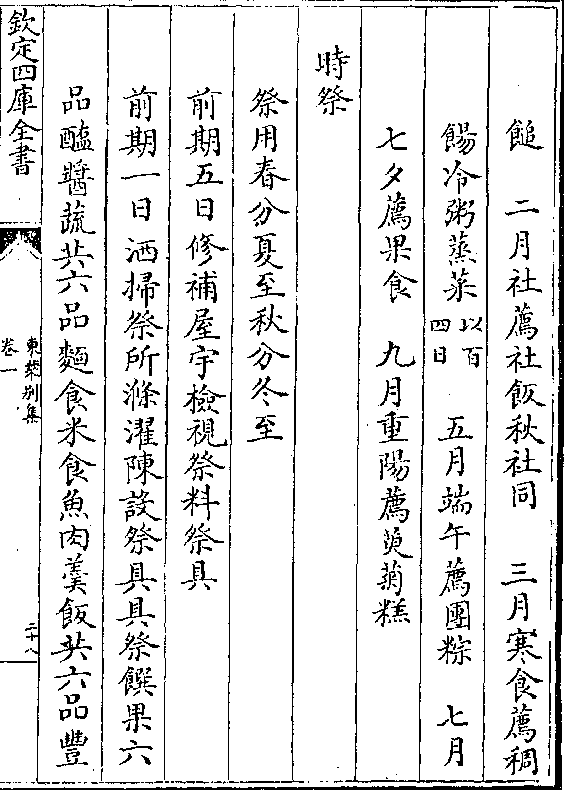 䭔　二月社薦社飯秋社同　三月寒食薦稠
餳冷粥蒸菜以百四日　五月端午薦團粽　七月
七夕薦果食　九月重陽薦萸菊糕
時祭
祭用春分夏至秋分冬至
前期五日修補屋宇檢視祭料祭具
前期一日洒掃祭所滌濯陳設祭具具祭饌果六
品醢醬蔬共六品麵食米食魚肉羹飯共六品豐
欽定四庫全書
東萊别集
卷一
二十八